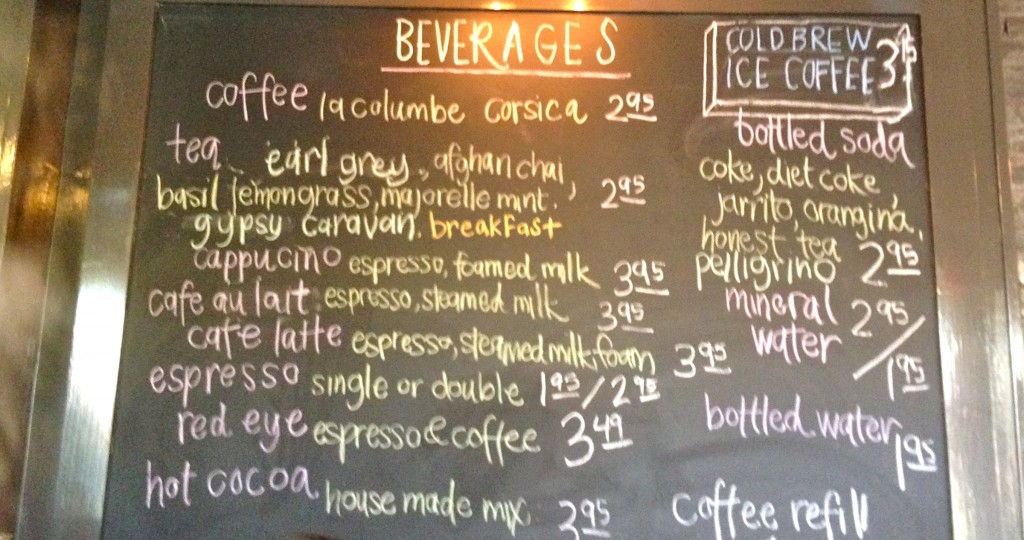 BEVERAGES
coffee la columbe corsica 2.95
tea earl grey, afghan chai,
basil lemongrass, majorelle mint, 2.95
gypsy caravan, breakfast
cappucino espresso, foamed milk 3.95
cafe au lait espresso, steamed milk 3.95
cafe latte espresso, steamed milk, foam 3.95
espresso single or double 1.95/2.95
red eye espresso & coffee 3.49
hot cocoa house made mix 2.95
COLD BREW
ICE COFFEE 3.75
bottled soda
coke, diet coke
jarrito, orangina,
honest tea
pelligrino 2.95
mineral
water 2.95/1.95
bottled water 1.95
coffee refill